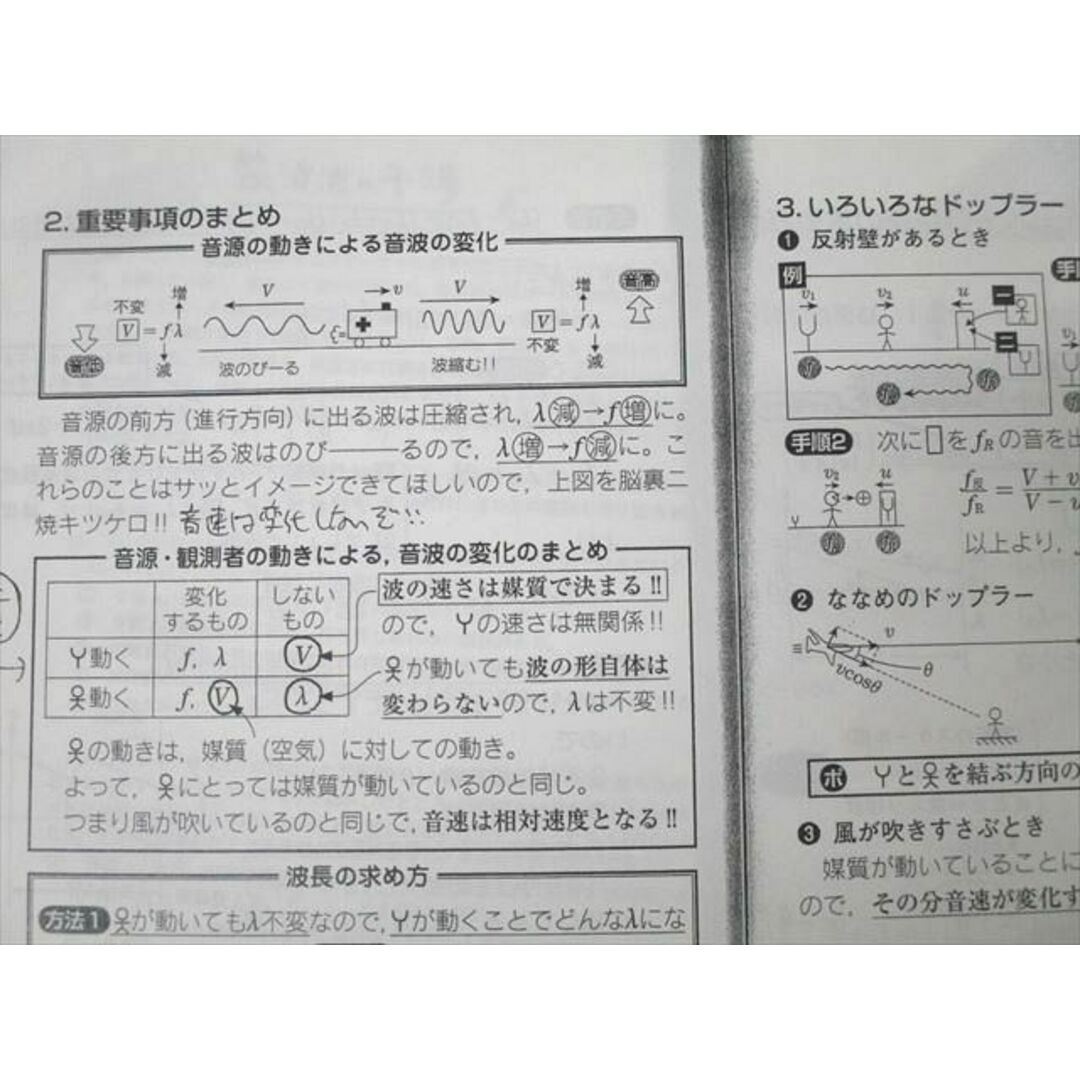 2. 重要事項のまとめ
音源の動きによる音波の変化
不変
V = fλ
増
減
音低
V
波のびーる
v
V
波縮む!!
V = fλ
不変
増
減
音高
音源の前方（進行方向）に出る波は圧縮され, λ減→f増に。
音源の後方に出る波はのび———るので, λ増→f減に。こ
れらのことはサッとイメージできてほしいので, 上図を脳裏二
焼キツケロ!! 音速は変化しないぞ
音源・観測者の動きによる, 音波の変化のまとめ
変化するもの
しないもの
動く f, λ V
動く f, V λ
波の速さは媒質で決まる!!
ので, の速さは無関係!!
が動いても波の形自体は
変わらないので, λは不変!!
の動きは, 媒質（空気）に対しての動き。
よって, にとっては媒質が動いているのと同じ。
つまり風が吹いているのと同じで, 音速は相対速度となる!!
波長の求め方
方法1 が動いてもλ不変なので, が動くことでどんなλにな
3. いろいろなドップラー
❶ 反射壁があるとき
例
v₁ v₂ u
一
二
手
v₁
手順2 次に を fR の音を出
v₂ u
f反/fR = V + v/V − u
以上より,
❷ ななめのドップラー
v
vcosθ
θ
ポ とを結ぶ方向の
❸ 風が吹きすさぶとき
媒質が動いていることに
ので, その分音速が変化す